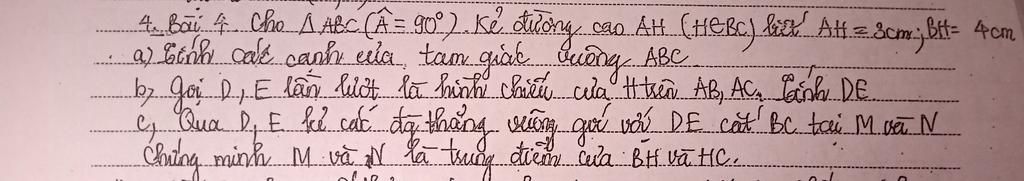 4. Bài 4. Cho Δ ABC (Â = 90°). Kẻ đường cao AH (H∈BC) biết AH = 3cm; BH = 4cm
a) Tính các cạnh của tam giác vuông ABC.
b, Gọi D, E lần lượt là hình chiếu của H trên AB, AC. Tính DE
c, Qua D, E kẻ các đg thẳng vuông góc với DE cắt BC tại M và N
Chứng minh M và N là trung điểm của BH và HC.